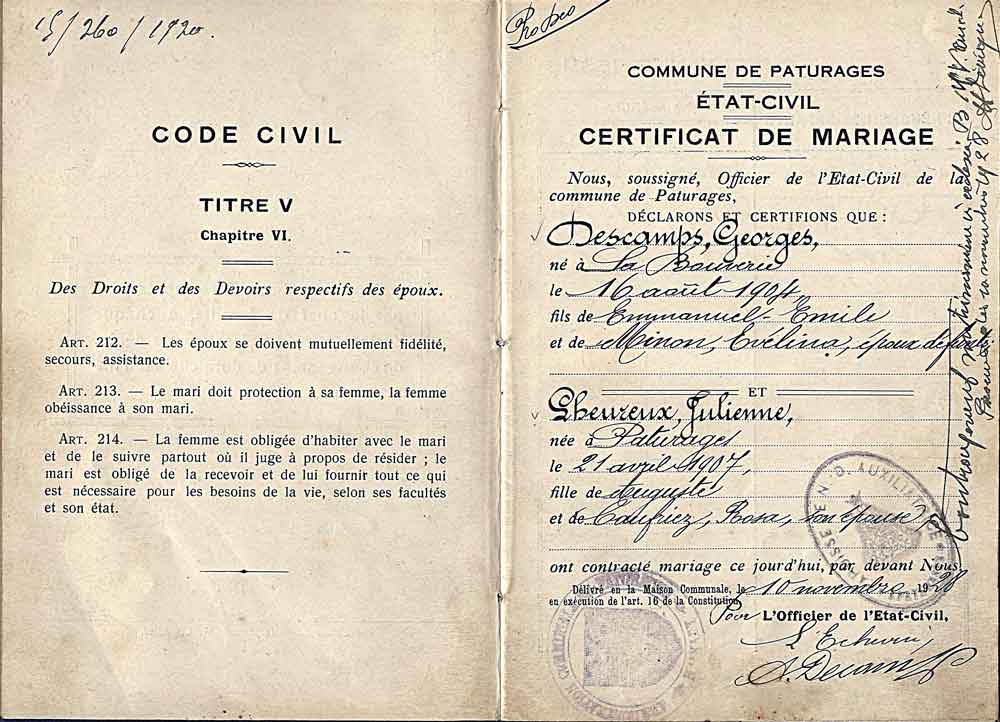 15/260/1920.
CODE CIVIL
TITRE V
Chapitre VI.
Des Droits et des Devoirs respectifs des époux.
ART. 212. — Les époux se doivent mutuellement fidélité,
secours, assistance.
ART. 213. — Le mari doit protection à sa femme, la femme
obéissance à son mari.
ART. 214. — La femme est obligée d'habiter avec le mari
et de le suivre partout où il juge à propos de résider ; le
mari est obligé de la recevoir et de lui fournir tout ce qui
est nécessaire pour les besoins de la vie, selon ses facultés
et son état.
COMMUNE DE PATURAGES
ÉTAT-CIVIL
CERTIFICAT DE MARIAGE
Nous, soussigné, Officier de l'Etat-Civil de la
commune de Paturages,
DÉCLARONS ET CERTIFIONS QUE :
Descamps, Georges,
né à La Bouverie
le 16 août 1904
fils de Emmanuel-Emile
et de Minon, Evélina, époux
ET
Lheureux, Julienne,
née à Paturages
le 21 avril 1907,
fille de Auguste
et de Caufriez, Rosa, son épouse,
ont contracté mariage ce jourd'hui, par devant Nous.
Délivré en la Maison Communale, le 10 novembre 1928
en exécution de l'art. 16 de la Constitution.
Pour L'Officier de l'Etat-Civil,
L'Echevin,